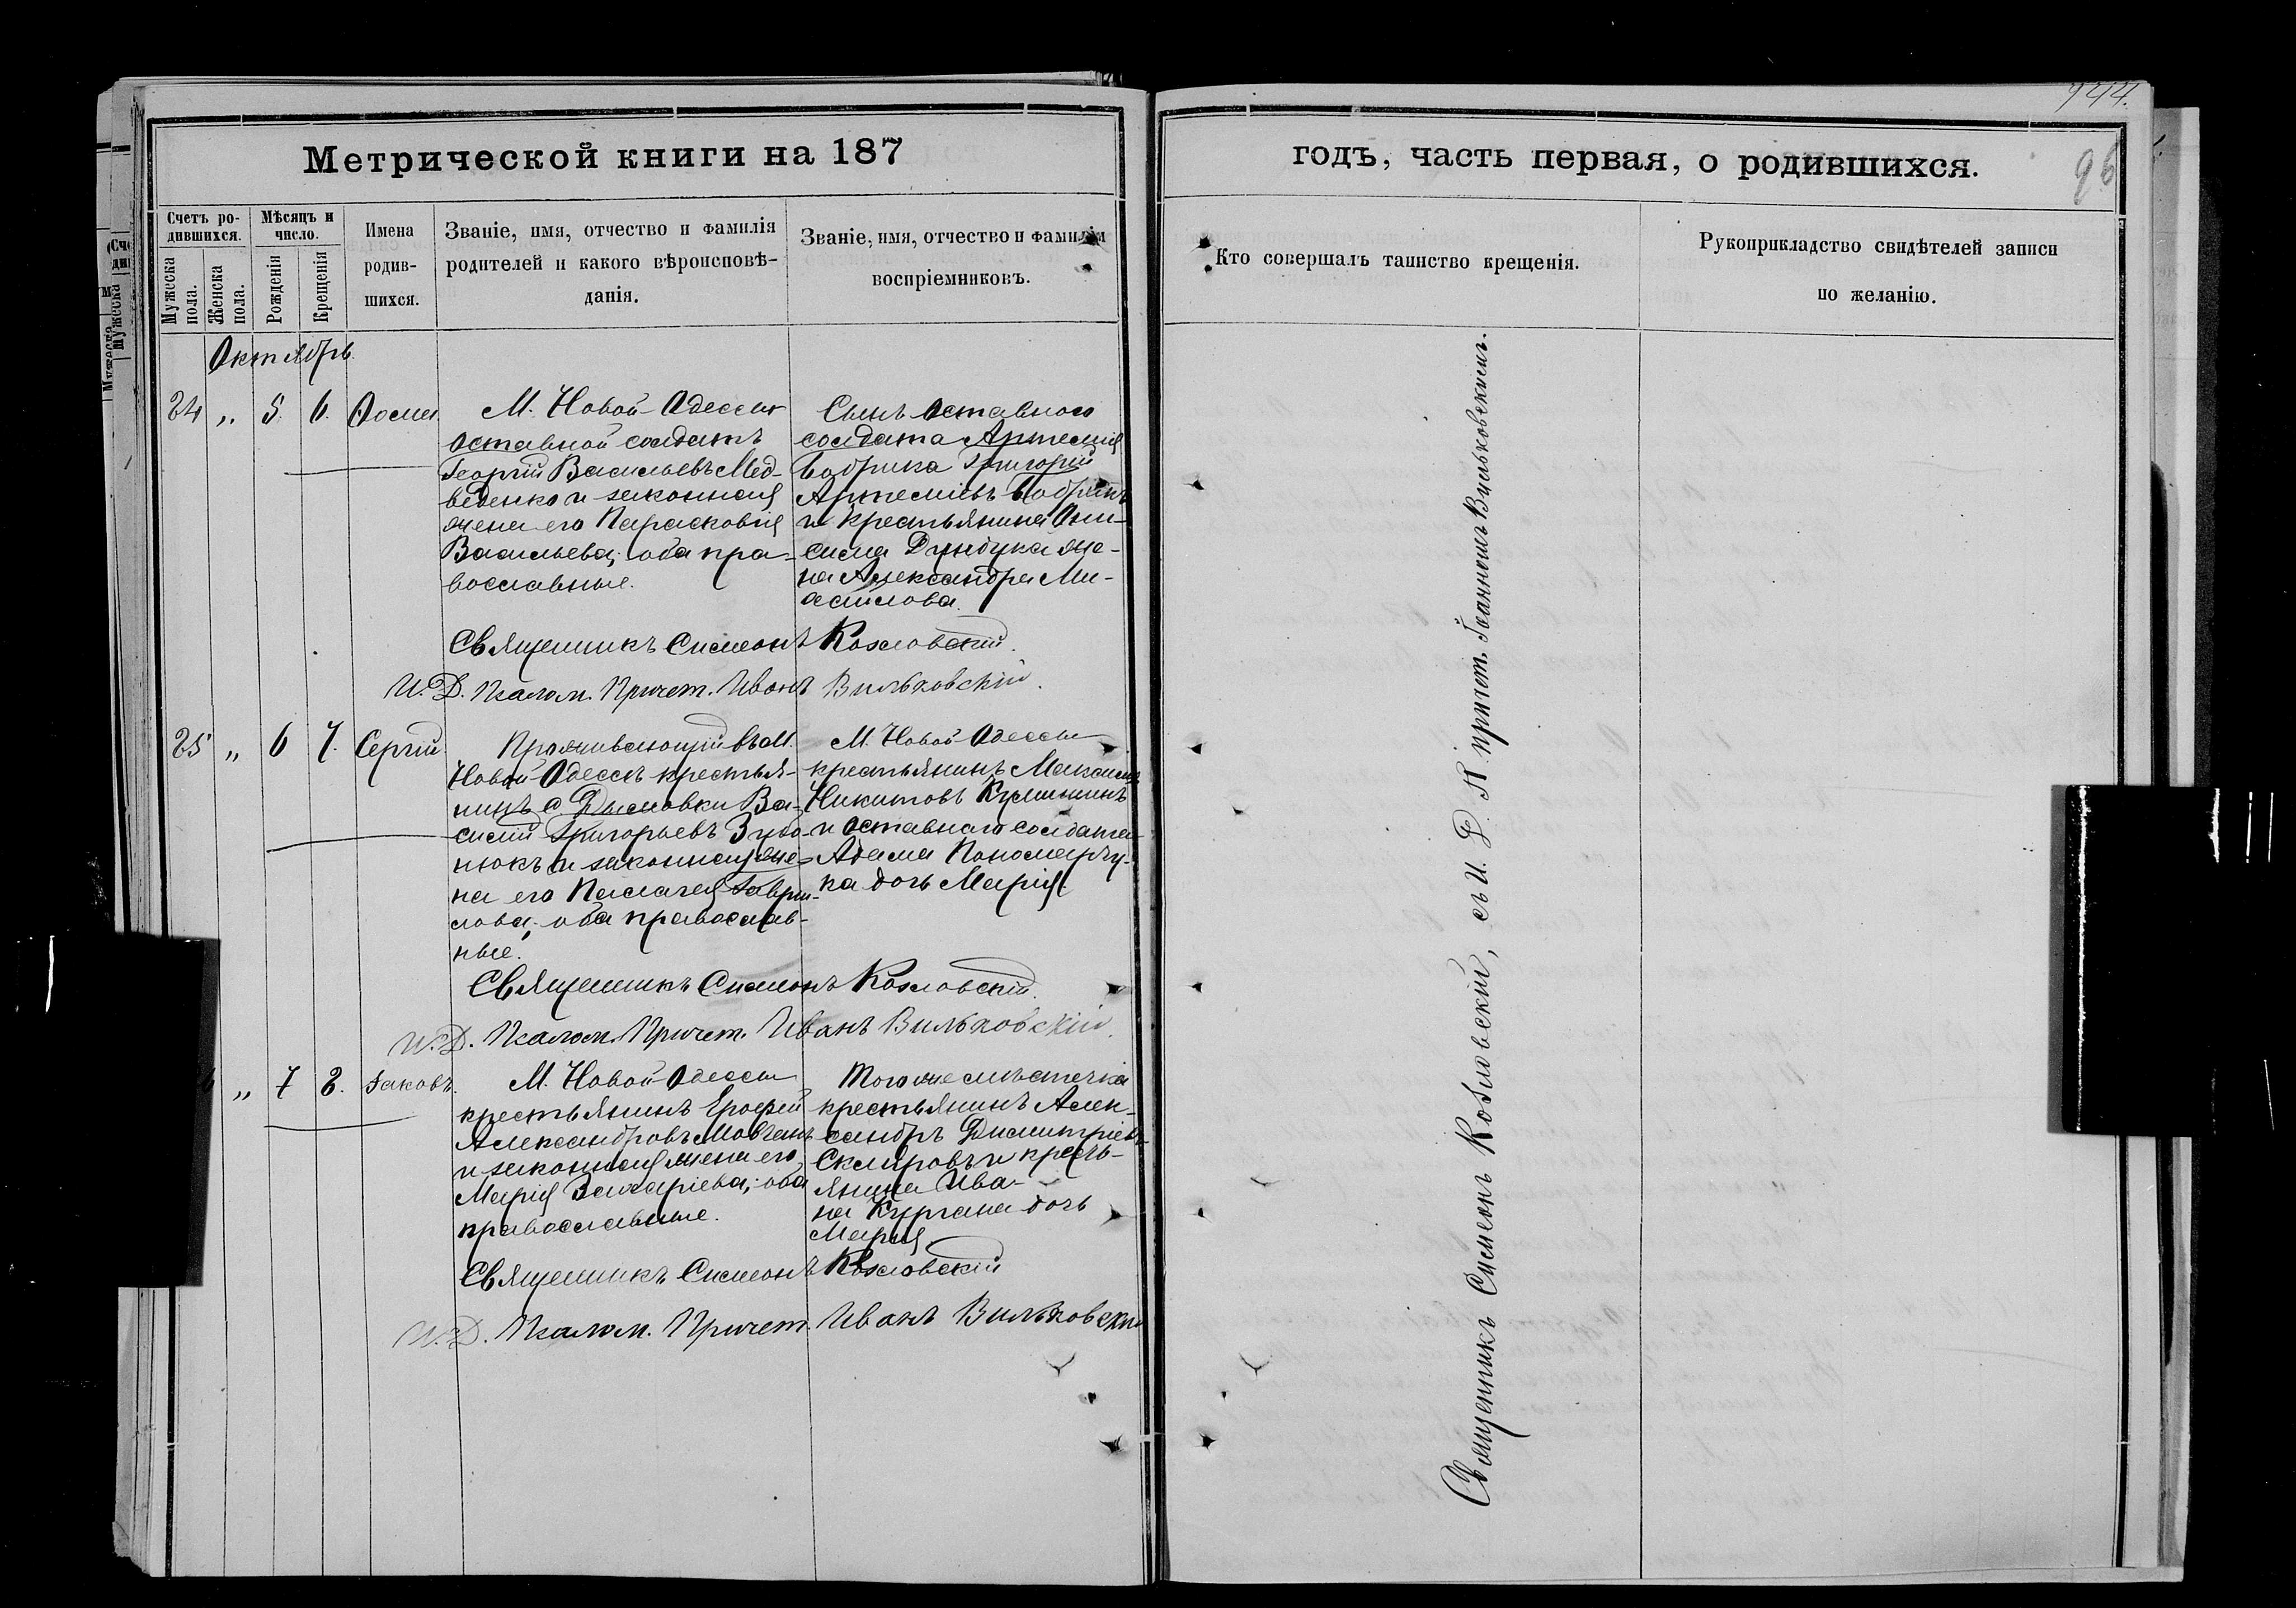 944.
96
Метрической книги на 187
годъ, часть первая, о родившихся.
Счетъ родившихся.
Мужеска пола.
Женска пола.
Мѣсяцъ и число.
Рожденія
Крещенія
Имена родив-
шихся.
Званіе, имя, отчество и фамилія
родителей и какого вѣроисповѣ-
данія.
Званіе, имя, отчество и фамилія
воспріемниковъ.
Кто совершалъ таинство крещенія.
Рукоприкладство свидѣтелей записи
по желанію.
Октябрь
24 „ 5. 6. Фома
М. Новой-Одессы
отставной солдатъ
Георгій Васильевъ Мед-
веденко и законная
жена его Парасковія
Васильева; оба пра-
вославные.
Сынъ отставного
солдата Артемія
Бобрика Григорій
Артеміевъ Бобрикъ
и крестьянина Они-
сима Дундука же-
на Александра Ми-
хайлова.
Священникъ Симеонъ Козловскій.
И. Д. Псалом. Причет. Иванъ Вильковскій.
25 „ 6 7. Сергій
Проживающій въ М.
Новой Одессѣ крестья-
нинъ с Дымовки Ва-
силій Григорьевъ
нюкъ и законная же-
на его Пелагея Гаври-
лова; оба православ-
ные.
М. Новой-Одессы
крестьянинъ Максимъ
Никитовъ
и отставного солдата
Адама Пономарчу-
ка дочь Марія.
Священникъ Симеонъ Козловскій.
И. Д. Псалом. Причет. Иванъ Вильковскій.
„ 7 8. Іаковъ.
М. Новой-Одессы
крестьянинъ Ерофей
Александровъ Мовчанъ
и законная жена его
Марія Захаріева; оба
православные.
Того же мѣстечка
крестьянинъ Алек-
сандръ Димитріевъ
Скляровъ и кресть-
янина Ива-
на Кургана дочь
Марія
Священникъ Симеонъ Козловскій
И. Д. Псалом. Причет. Иванъ Вильковскій
Священникъ Симеонъ Козловскій, съ И. Д. П причет. Іоанномъ Вильковскимъ.